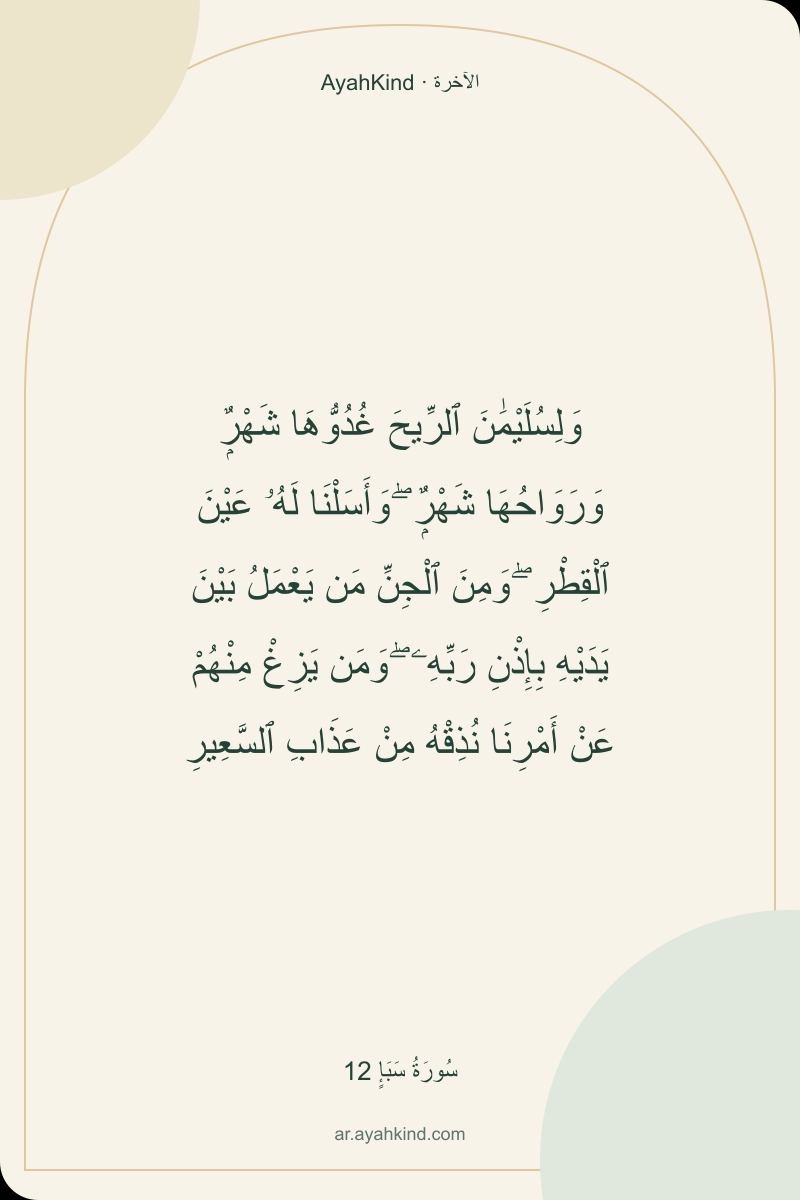 AyahKind · الآخرة
وَلِسُلَيْمَٰنَ ٱلرِّيحَ غُدُوُّهَا شَهْرٌۭ
وَرَوَاحُهَا شَهْرٌۭ ۖ وَأَسَلْنَا لَهُۥ عَيْنَ
ٱلْقِطْرِ ۖ وَمِنَ ٱلْجِنِّ مَن يَعْمَلُ بَيْنَ
يَدَيْهِ بِإِذْنِ رَبِّهِۦ ۖ وَمَن يَزِغْ مِنْهُمْ
عَنْ أَمْرِنَا نُذِقْهُ مِنْ عَذَابِ ٱلسَّعِيرِ
سُورَةُ سَبَإٍ 12
ar.ayahkind.com